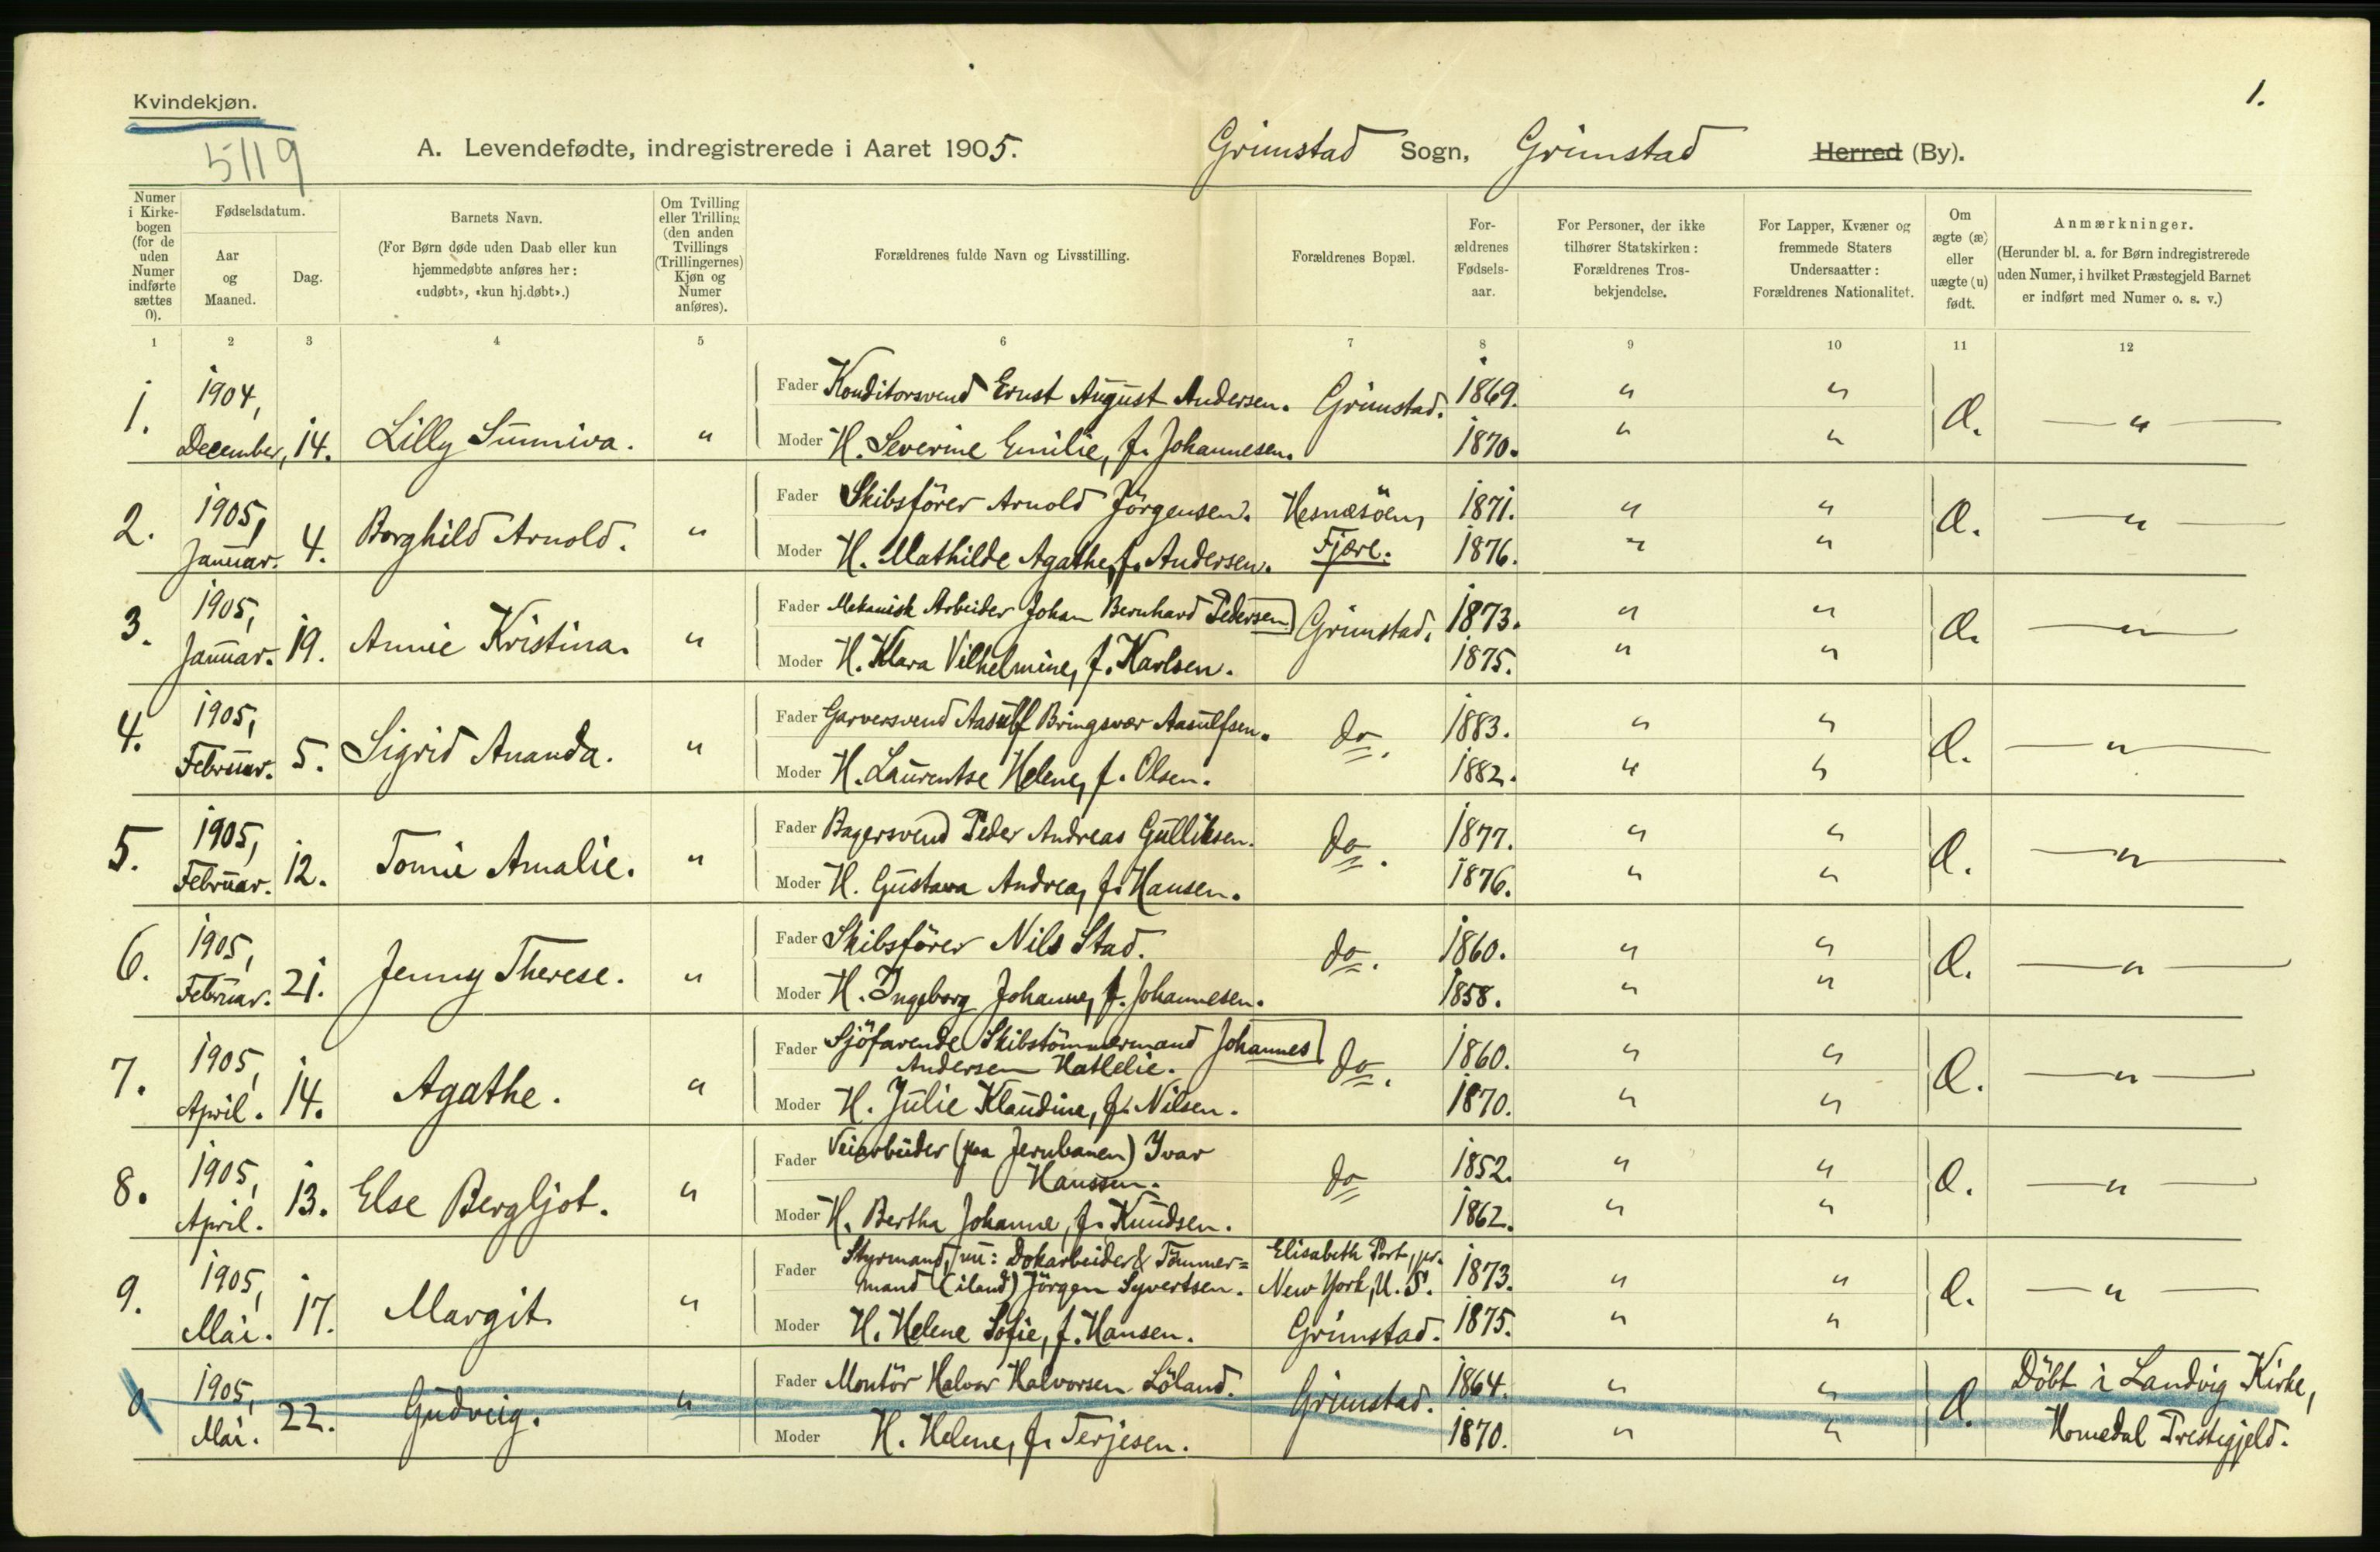 Kvindekjøn.
5119
1.
A. Levendefødte, indregistrerede i Aaret 1905. Grimstad Sogn, Grimstad Herred (By).
Numer i Kirkebogen (for de uden Numer indførte sættes 0).
Fødselsdatum.
Aar og Maaned.
Dag.
Barnets Navn.
(For Børn døde uden Daab eller kun hjemmedøbte anføres her: «udøbt», «kun hj.døbt».)
Om Tvilling eller Trilling (den anden Tvillings (Trillingernes) Kjøn og Numer anføres).
Forældrenes fulde Navn og Livsstilling.
Forældrenes Bopæl.
For-ældrenes Fødsels-aar.
For Personer, der ikke tilhører Statskirken: Forældrenes Tros-bekjendelse.
For Lapper, Kvæner og fremmede Staters Undersaatter: Forældrenes Nationalitet.
Om ægte (æ) eller uægte (u) født.
Anmærkninger.
(Herunder bl. a. for Børn indregistrerede uden Numer, i hvilket Præstegjeld Barnet er indført med Numer o. s. v.)
1 2 3 4 5 6 7 8 9 10 11 12
1. 1904, December, 14. Lilly Sunniva. " Fader Konditorsvend Ernst August Andersen. Grimstad. 1869. " " Æ. — " —
Moder H. Severine Emilie, f. Johannesen. 1870. " "
2. 1905, Januar. 4. Borghild Arnold. " Fader Skibsfører Arnold Jörgensen. Hesnæsöen, 1871. " " Æ. — " —
Moder H. Mathilde Agathe, f. Andersen. Fjære. 1876. " "
3. 1905, Januar. 19. Annie Kristina. " Fader Mekanisk Arbeider Johan Bernhard Pedersen. Grimstad. 1873. " " Æ. — " —
Moder H. Klara Vilhelmine, f. Karlsen. 1875. " "
4. 1905, Februar. 5. Sigrid Ananda. " Fader Garversvend Aasulf Bringsvær Aasulfsen. do. 1883. " " Æ. — " —
Moder H. Laurentse Helene, f. Olsen. 1882. " "
5. 1905, Februar. 12. Tomie Amalie. " Fader Bagersvend Peder Andreas Gulliksen. do. 1877. " " Æ. — " —
Moder H. Gustava Andrea, f. Hansen. 1876. " "
6. 1905, Februar. 21. Jenny Therese. " Fader Skibsförer Nils Stad. do. 1860. " " Æ. — " —
Moder H. Ingeborg Johanne, f. Johannesen. 1858. " "
7. 1905, April. 14. Agathe. " Fader Sjöfarende Skibstömmermand Johannes
Andersen Hatlelie. do. 1860. " " Æ. — " —
Moder H. Julie Klaudine, f. Nilsen. 1870. " "
8. 1905, April. 13. Else Bergljot. " Fader Veiarbeider (paa Jernbanen) Ivar
Hanssen. do 1852. " " Æ. — " —
Moder H. Bertha Johanne, f. Knudsen. 1862. " "
9. 1905, Mai. 17. Margit " Fader Styrmand, nu: Dokarbeider & Tömmer=
mand (iland) Jörgen Syvertsen. Elisabeth Port, pr.
New York, U. S. 1873. " " Æ. — " —
Moder H. Helene Sofie, f. Hansen. Grimstad. 1875. " "
0 1905, Mai. 22. Gudveig. " Fader Montör Halvor Halvorsen Löland. Grimstad. 1864. " " Æ. Döbt i Landvig Kirke,
Moder H. Helene, f. Terjesen. 1870. " " Homedal Prestegjeld.